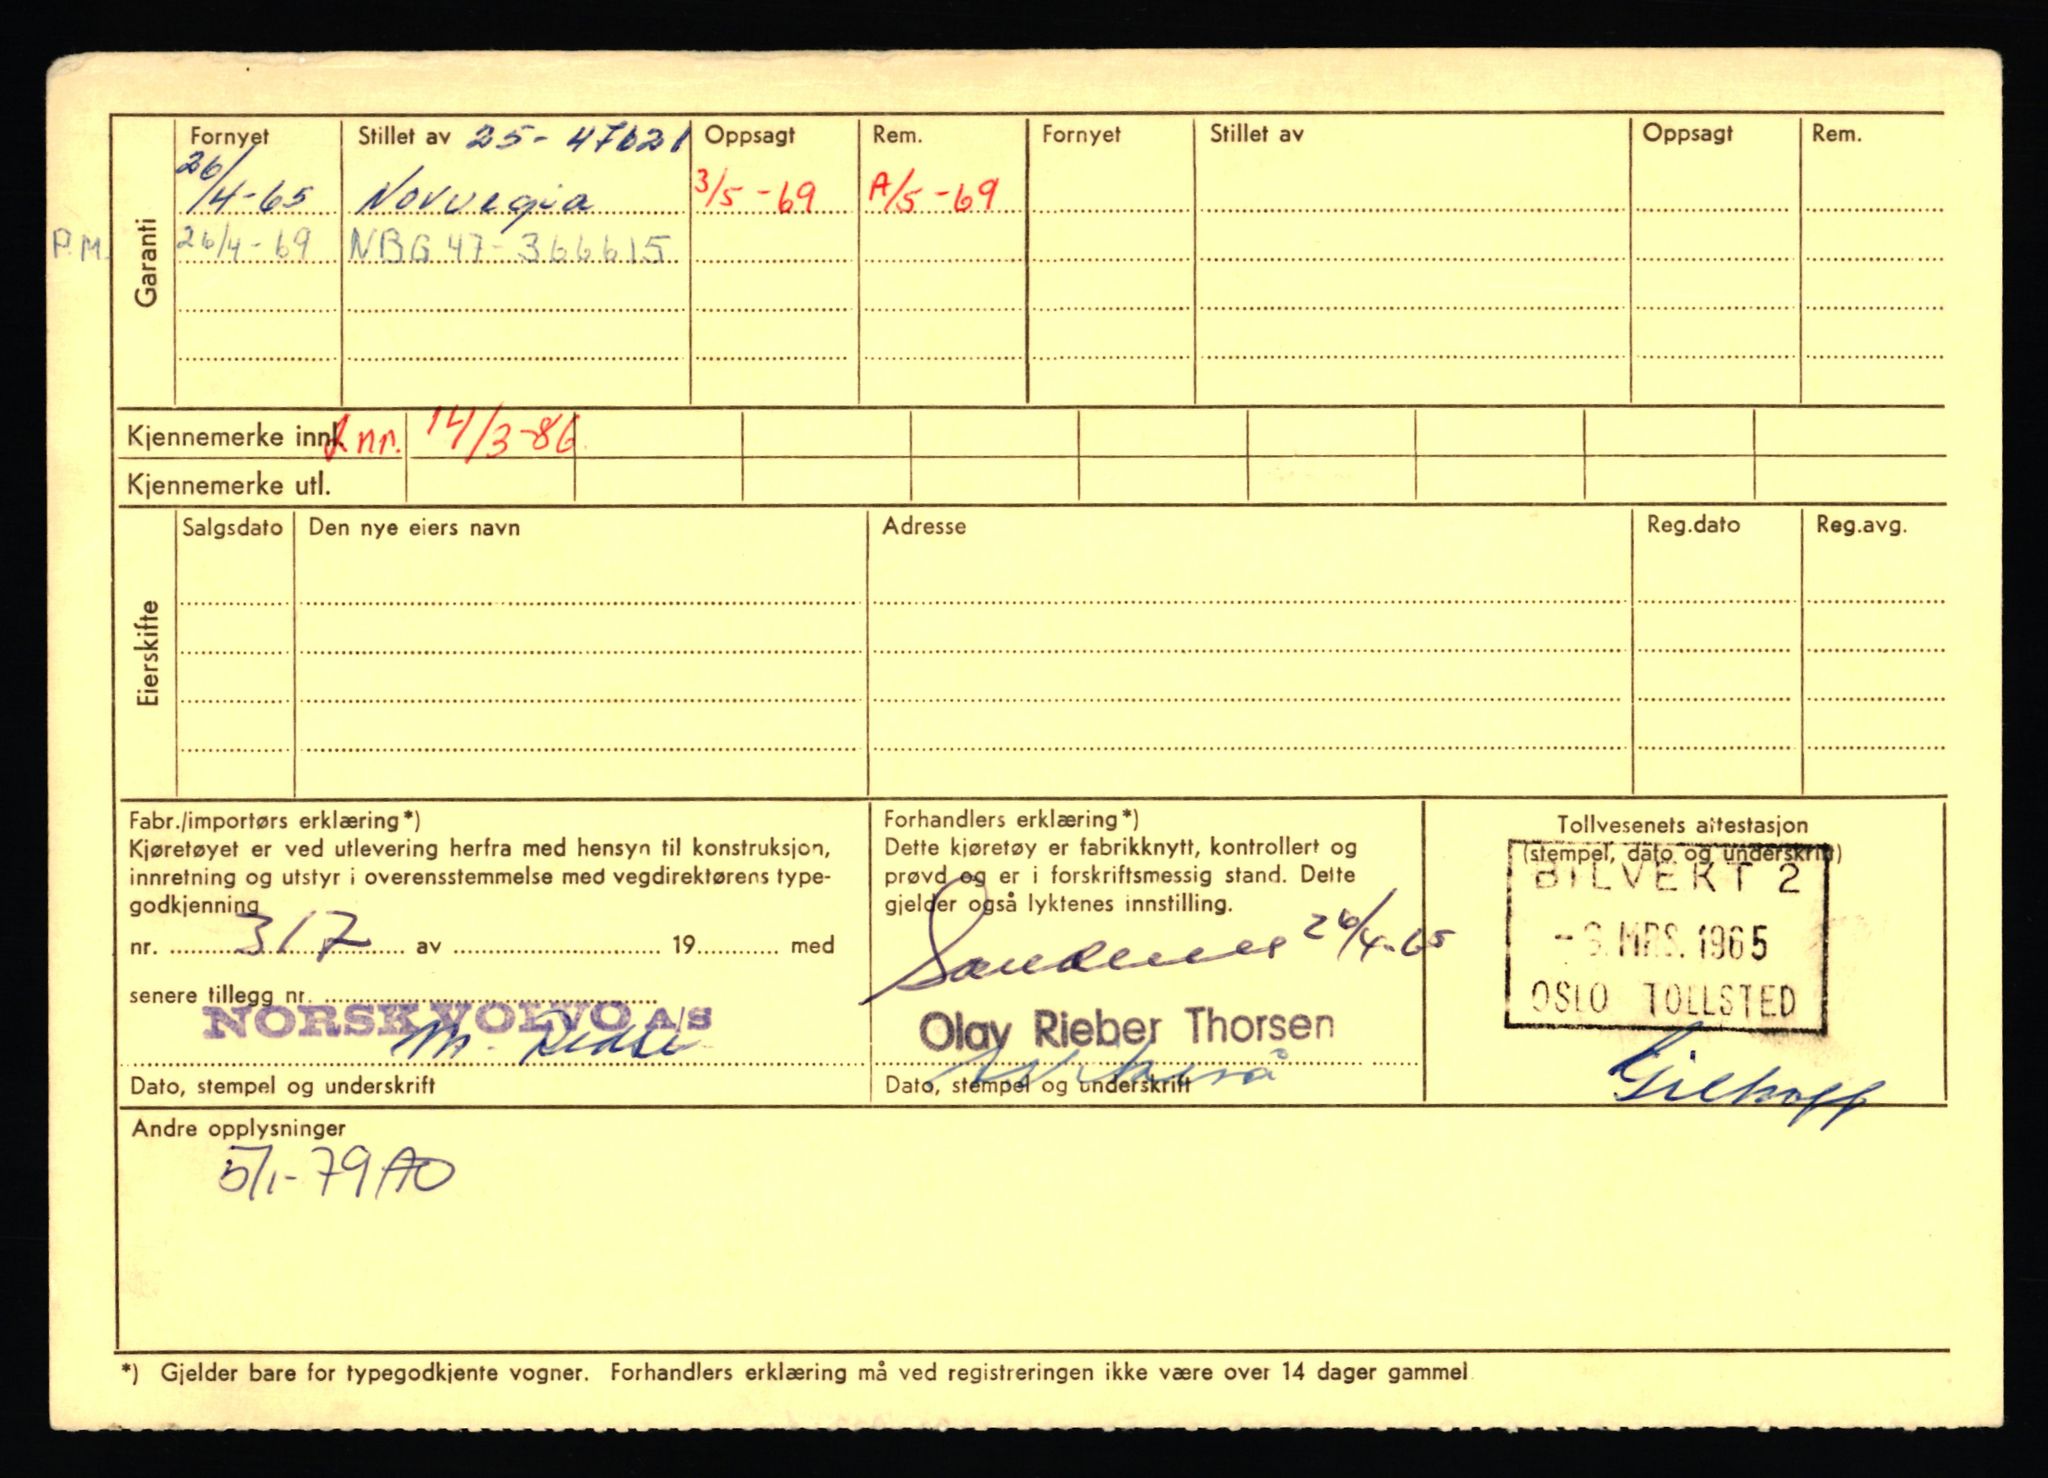 Fornyet Stillet av 25-47621 Oppsagt Rem. Fornyet Stillet av Oppsagt Rem.
26/4-65 Norvegia 3/5-69 A/5-69
P.M. 26/4-69 NBG 47-366615
Garanti
Kjennemerke innl. nr. 14/3-86
Kjennemerke utl.
Salgsdato Den nye eiers navn Adresse Reg.dato Reg.avg.
Eierskifte
Fabr./importørs erklæring*)
Kjøretøyet er ved utlevering herfra med hensyn til konstruksjon,
innretning og utstyr i overensstemmelse med vegdirektørens type-
godkjenning
nr. 317 av 19 med
senere tillegg nr.
NORSK VOLVO A/S
Dato, stempel og underskrift
Forhandlers erklæring*)
Dette kjøretøy er fabrikknytt, kontrollert og
prøvd og er i forskriftsmessig stand. Dette
gjelder også lyktenes innstilling.
Sandnes 26/4-65
Olav Rieber Thorsen
Dato, stempel og underskrift
Tollvesenets attestasjon
(stempel, dato og underskrift)
BILVERKT 2
MRS. 1965
OSLO TOLLSTED
Andre opplysninger
5/1-79 AO
*) Gjelder bare for typegodkjente vogner. Forhandlers erklæring må ved registreringen ikke være over 14 dager gammel